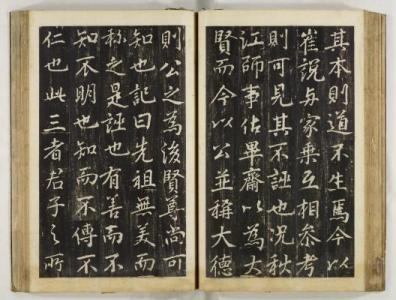 其本則道不生焉今以
崔説与家乗互相参考
則可見其不誣也況秋
江師事佔畢齋以為大
賢而今以公並稱大德
則公之為後賢尊尚可
知也記曰先祖無美而
称之是誣也有善而不
知不明也知而不傳不
仁也此三者君子之所